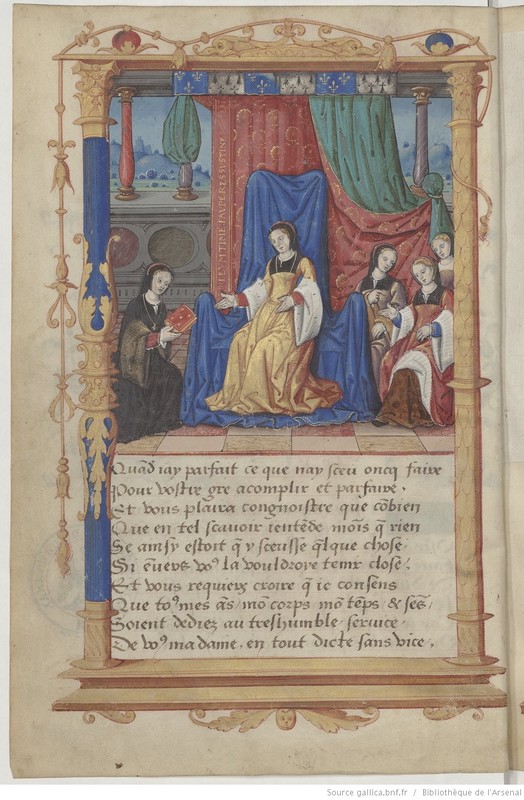 TIME PAUPERES SUSTINE
Quãd iay parfait ce que nay sceu oncq faire
Pour vostre gre acomplir et parfaire.
Et vous plaira congnoistre que cõbien
Que en tel scauoir ientẽde moĩs q̃ rien
Se ainsy estoit q̃ y sceusse q̃lque chose.
Si enuers voꝰ la vouldroye tenir close.
Et vous requierx croire q̃ ie consens
Que toꝰ mes ãs, mõ corps mõ tẽps & sẽs,
Soient dediez au treshumble seruice.
De voꝰ ma dame, en tout dicte sans vice.
Source gallica.bnf.fr / Bibliothèque de l'Arsenal